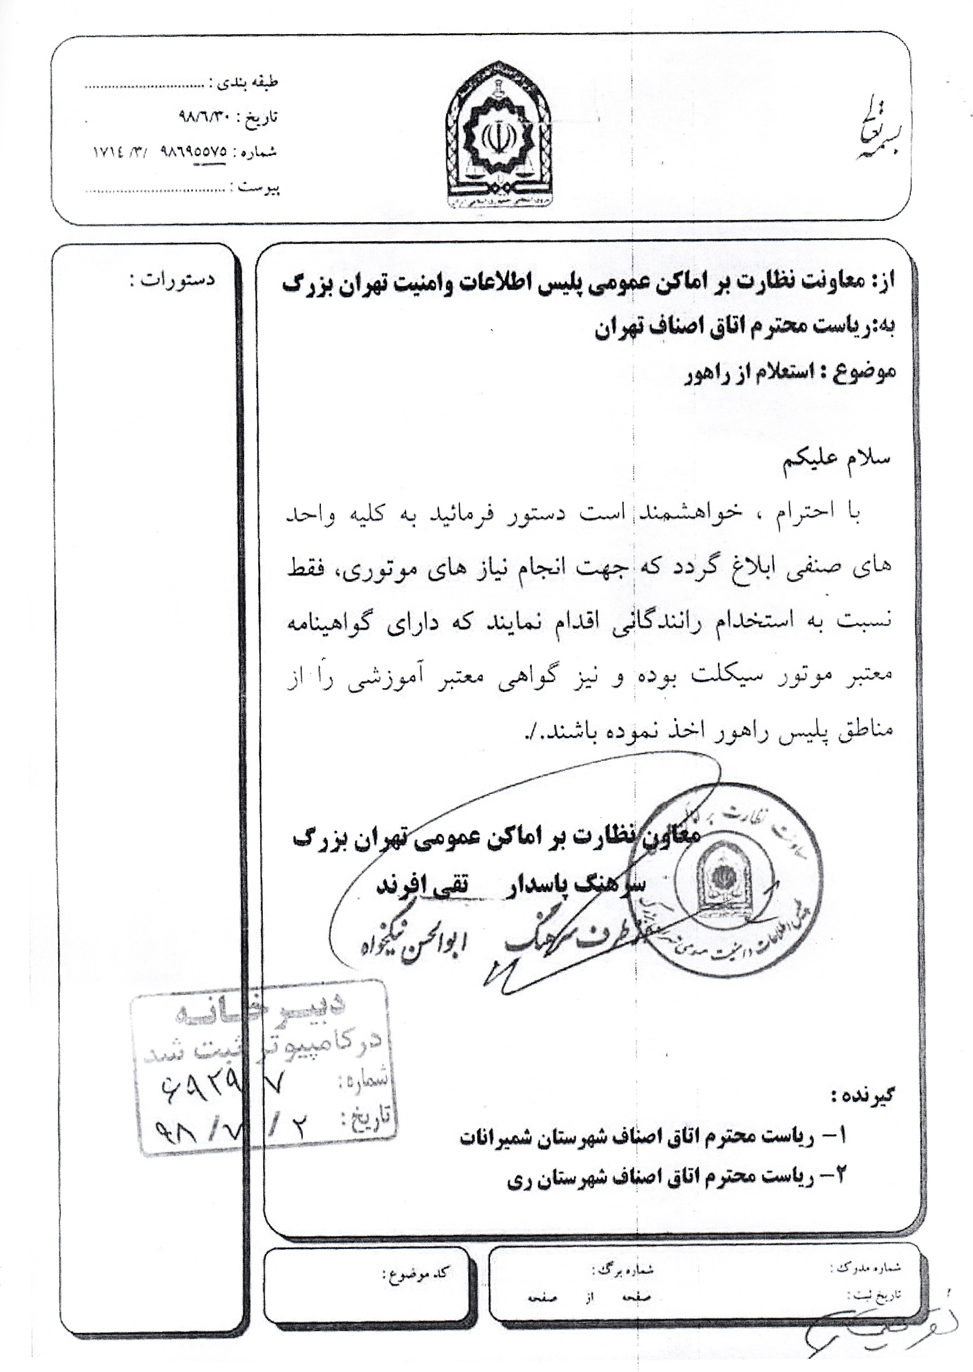 بسمه تعالی
طبقه بندی : ..............................
تاریخ : ۹۸/٦/۳۰
شماره : ۹۸٦۹۵۵۷۵ /۳/ ۱۷۱٤
پیوست : ..............................
نیروی انتظامی جمهوری اسلامی ایران
دستورات :
از: معاونت نظارت بر اماکن عمومی پلیس اطلاعات وامنیت تهران بزرگ
به:ریاست محترم اتاق اصناف تهران
موضوع : استعلام از راهور
سلام علیکم
با احترام ، خواهشمند است دستور فرمائید به کلیه واحد
های صنفی ابلاغ گردد که جهت انجام نیاز های موتوری، فقط
نسبت به استخدام رانندگانی اقدام نمایند که دارای گواهینامه
معتبر موتور سیکلت بوده و نیز گواهی معتبر آموزشی را از
مناطق پلیس راهور اخذ نموده باشند./.
معاون نظارت بر اماکن عمومی تهران بزرگ
سرهنگ پاسدار تقی افرند
از طرف سرهنگ ابوالحسن نیکخواه
معاونت نظارت بر
پلیس اطلاعات و امنیت عمومی تهران بزرگ
دبیرخانه
در کامپیوتر ثبت شد
شماره: ۶۹۲۹۰۷
تاریخ: ۹۸/۷/۲
گیرنده :
۱– ریاست محترم اتاق اصناف شهرستان شمیرانات
۲– ریاست محترم اتاق اصناف شهرستان ری
شماره مدرک :
شماره برگ :
تاریخ ثبت :
صفحه از صفحه
کد موضوع :